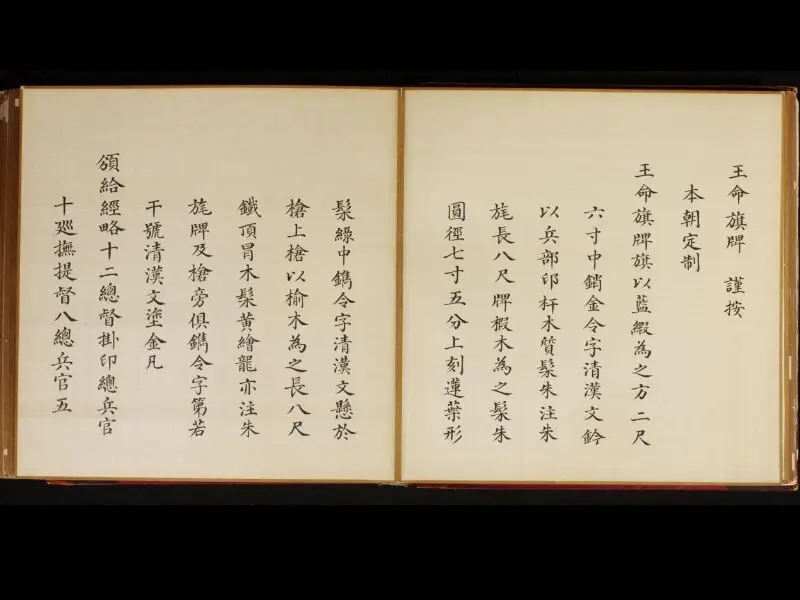 王命旗牌　謹按
本朝定制
王命旗牌旗以藍緞為之方二尺
六寸中銷金令字清漢文鈐
以兵部印杆木質髹朱注朱
旄長八尺牌椴木為之髹朱
圓徑七寸五分上刻蓮葉形
髹綠中鐫令字清漢文懸於
槍上槍以榆木為之長八尺
鐵頂冒木髹黄繪龍亦注朱
旄牌及槍旁俱鐫令字第若
干號清漢文塗金凡
頒給經略十二總督掛印總兵官
十廵撫提督八總兵官五